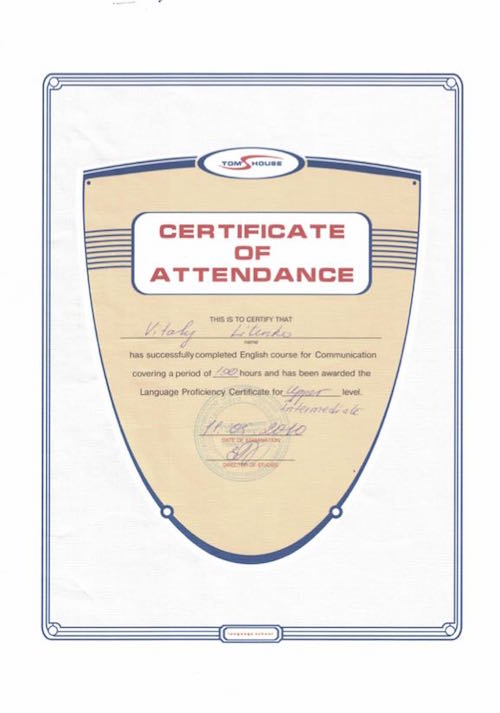 TOMSHOUSE
CERTIFICATE
OF
ATTENDANCE
THIS IS TO CERTIFY THAT
Vitaly
name
has successfully completed English course for Communication
covering a period of 100 hours and has been awarded the
Language Proficiency Certificate for Upper level.
Intermediate
2010
DATE OF EXAMINATION
DIRECTOR OF STUDIES
language school